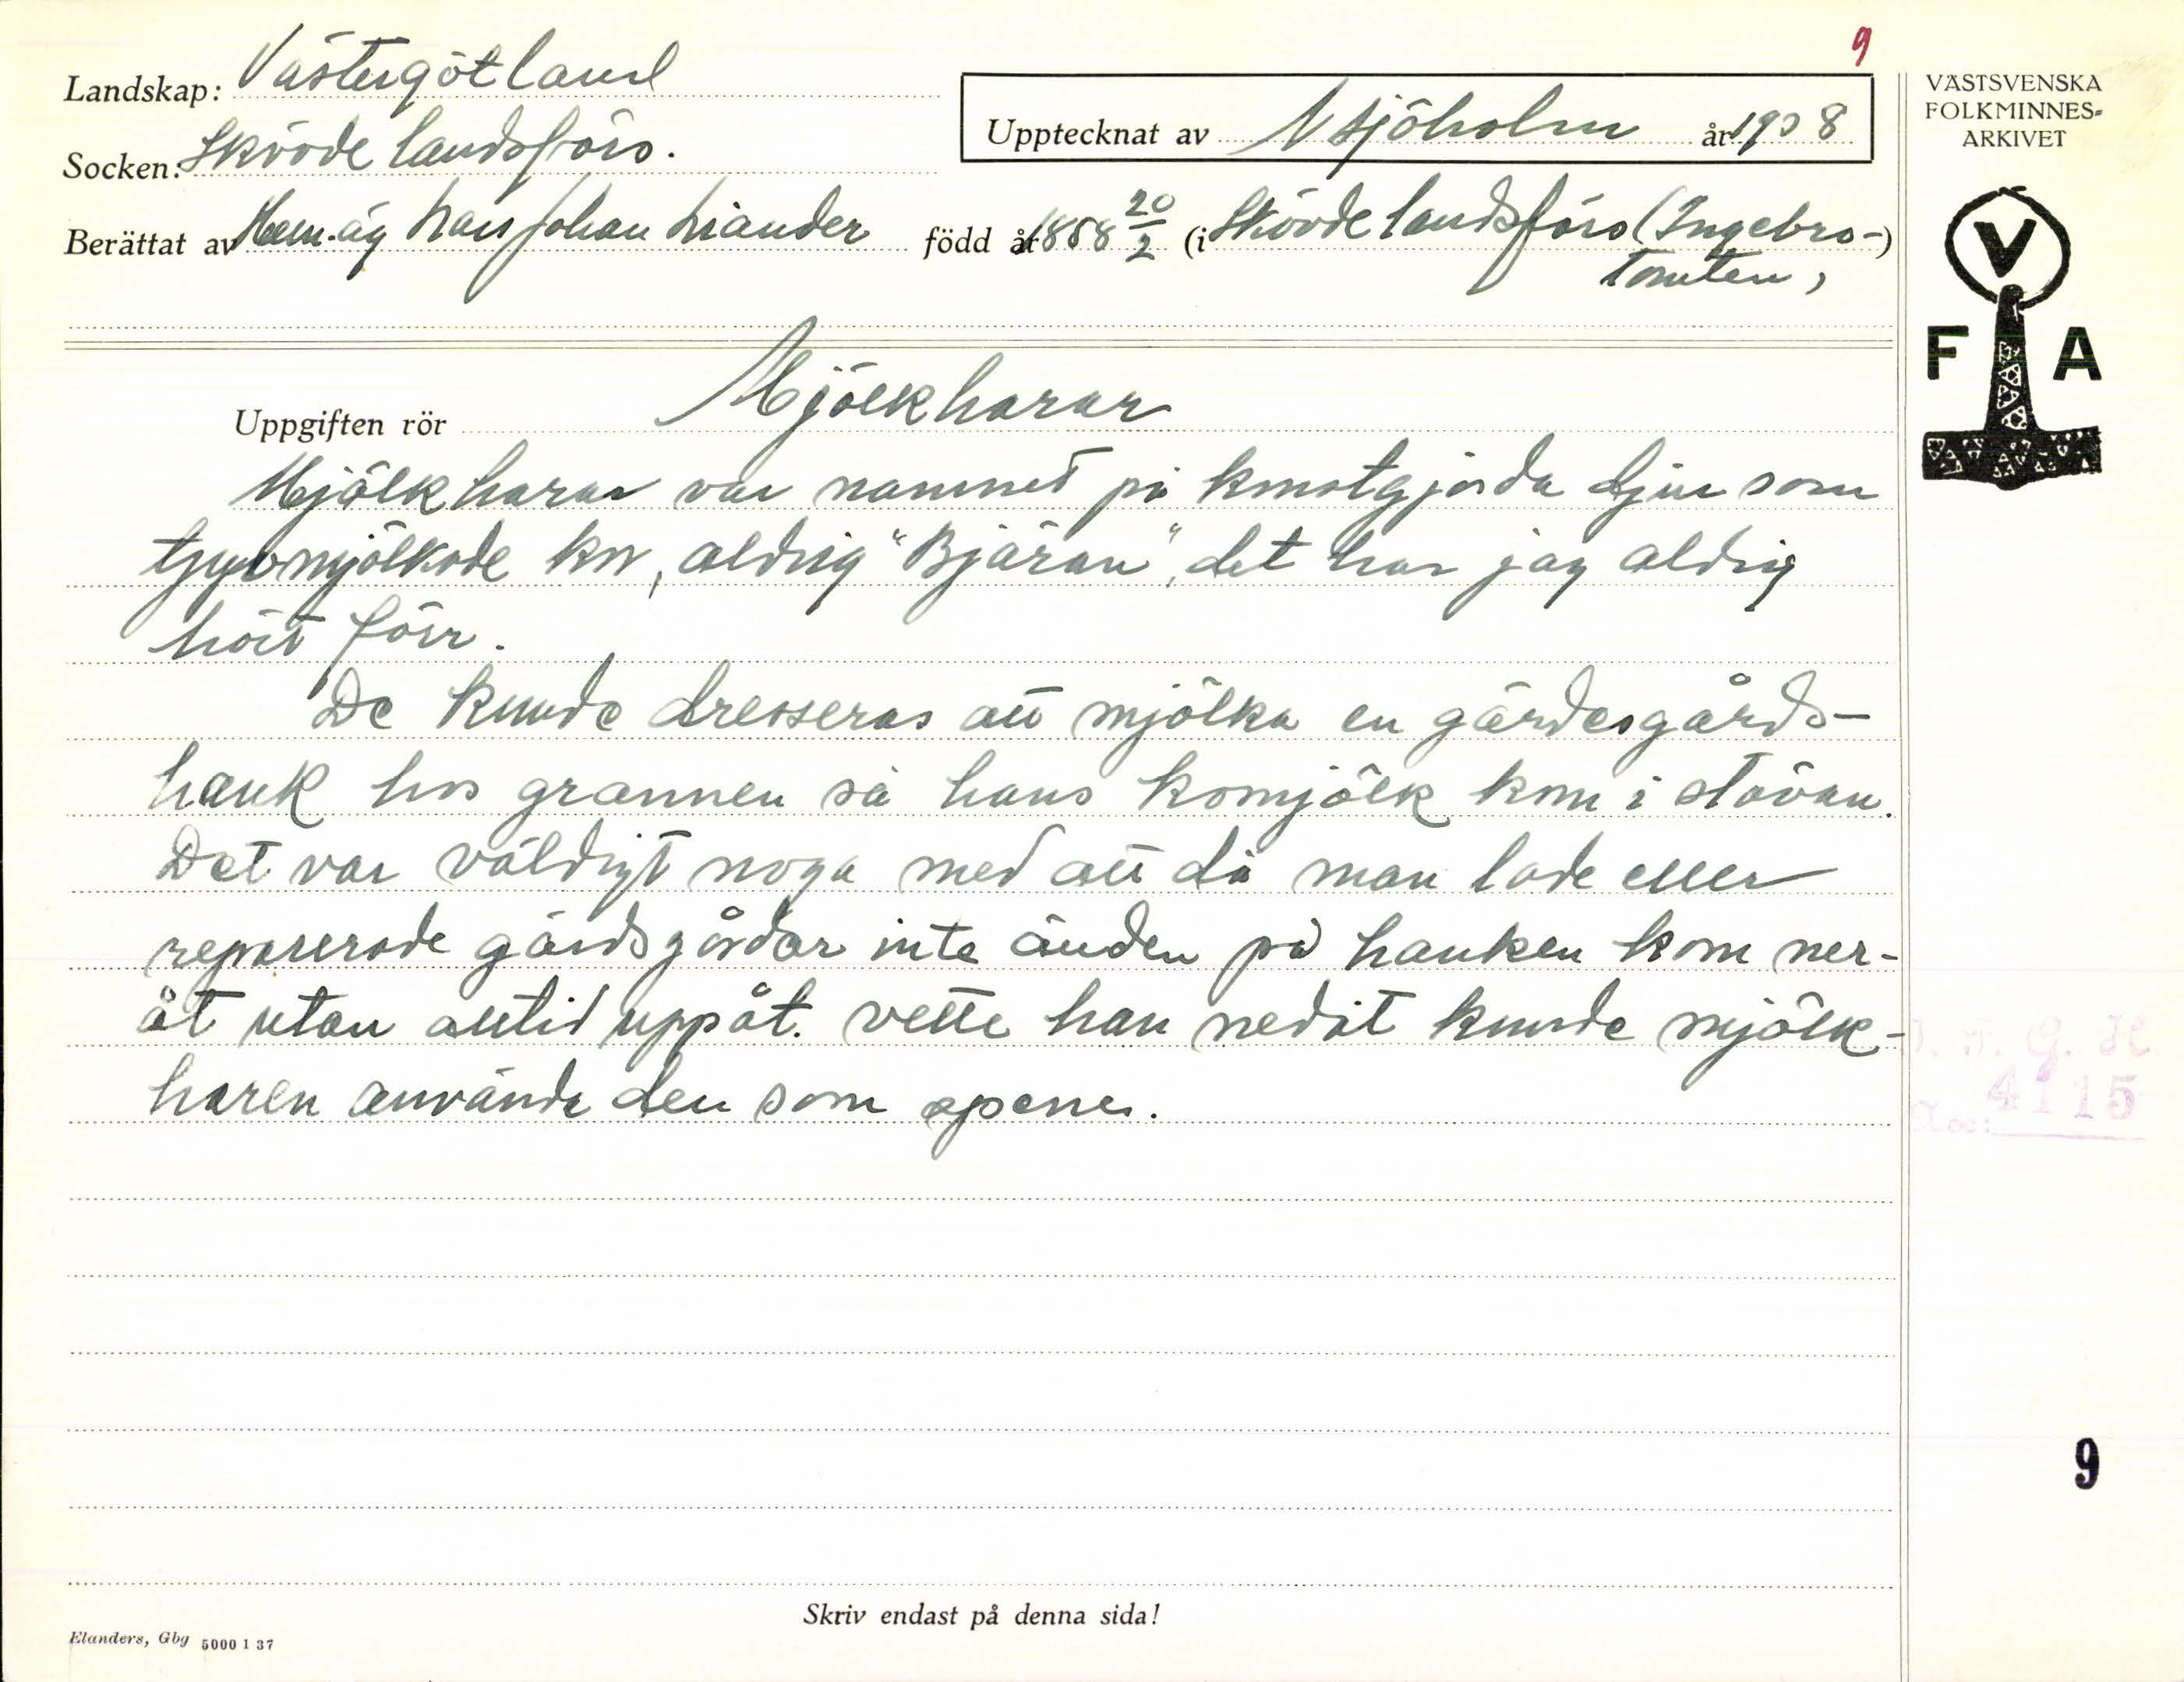 9
Landskap: Västergötland
Socken: Skövde landsförs.
Upptecknat av N Sjöholm år 1938
Berättat av Hem.äg Lars Johan Liander född år 1858 20/2 (i Skövde landsförs (Ingebro-)
tomten,
VÄSTSVENSKA
FOLKMINNES-
ARKIVET
V
F A
Uppgiften rör Mjölkharar
Mjölkharar var namnet på konstgjorda djur som
tjuvmjölkade kor, aldrig "Bjäran", det har jag aldrig
hört förr.
De kunde dresseras att mjölka en gärdesgårds-
hank hos grannen så hans komjölk kom i stävan.
Det var väldigt noga med att då man lade eller
reparerade gärdsgårdar inte änden på hanken kom ner-
åt utan alltid uppåt. vette han nedåt kunde mjölk-
haren använda den som spene.
I. F. G. H.
Acc: 4115
9
Skriv endast på denna sida!
Elanders, Gbg 5000 1 37